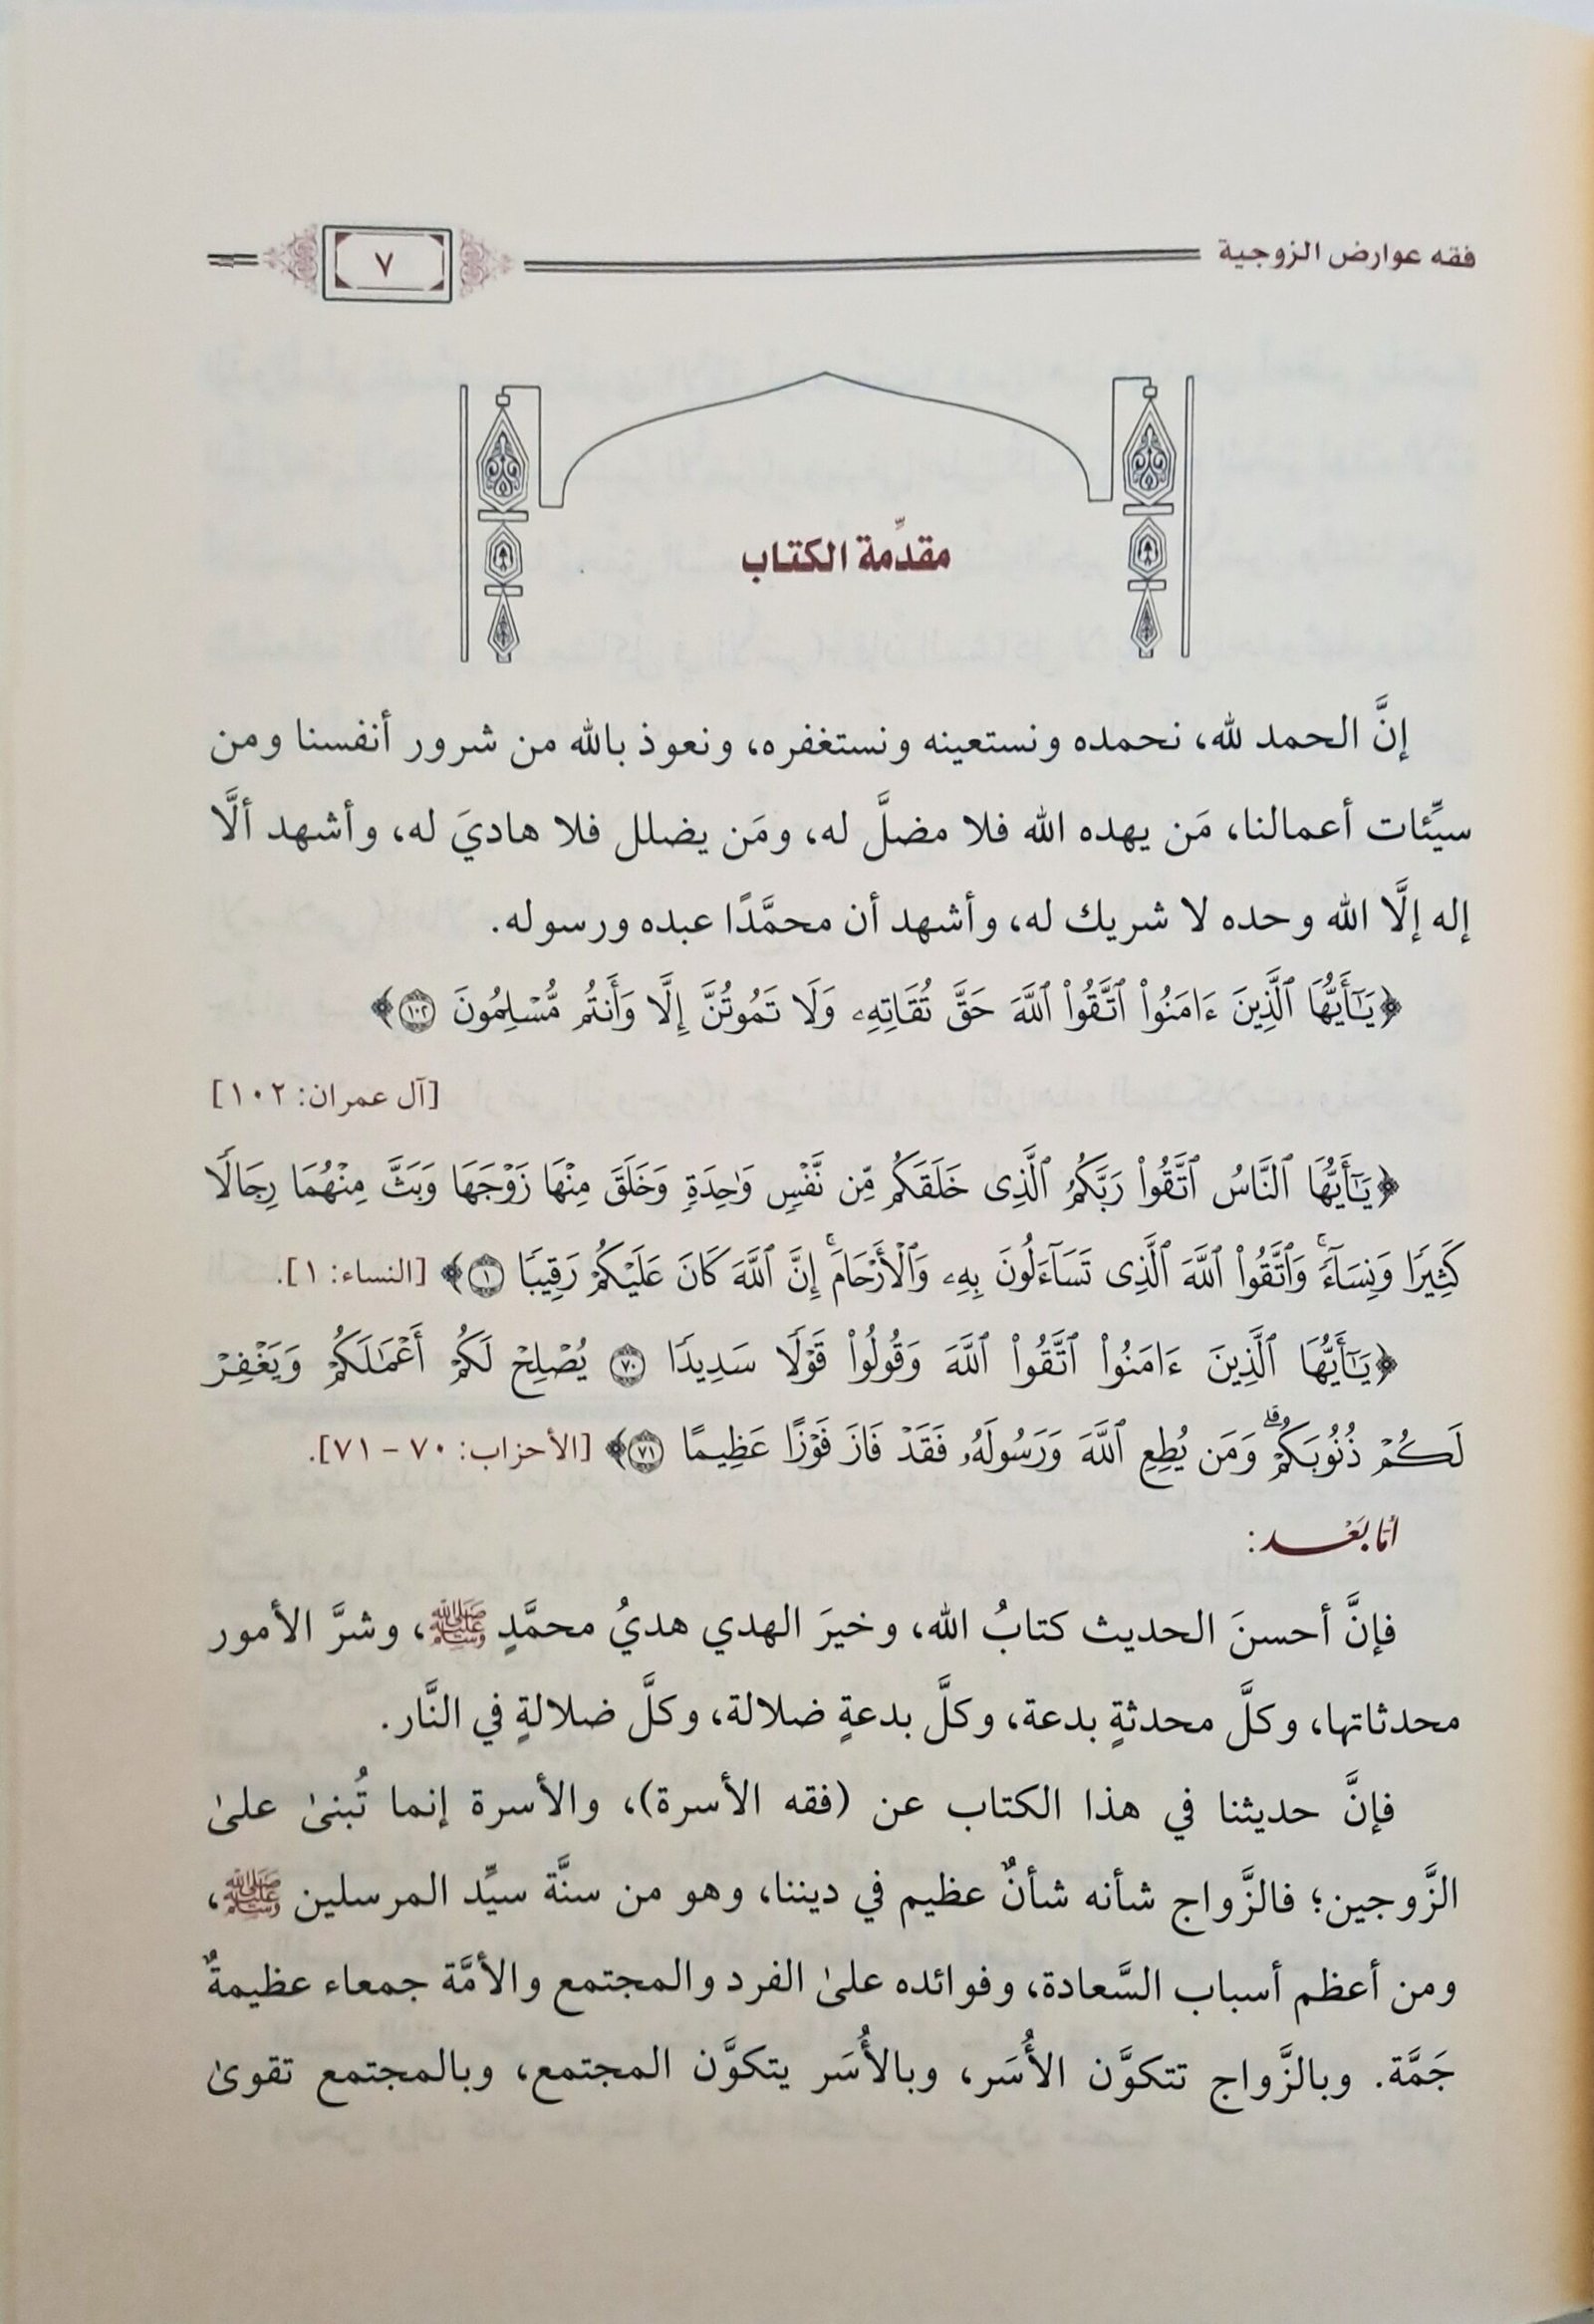 فقه عوارض الزوجية
٧
مقدِّمة الكتاب
إنَّ الحمد لله، نحمده ونستعينه ونستغفره، ونعوذ بالله من شرور أنفسنا ومن
سيِّئات أعمالنا، مَن يهده الله فلا مضلَّ له، ومَن يضلل فلا هاديَ له، وأشهد ألَّا
إله إلَّا الله وحده لا شريك له، وأشهد أن محمَّدًا عبده ورسوله.
﴿يَٰٓأَيُّهَا ٱلَّذِينَ ءَامَنُوا۟ ٱتَّقُوا۟ ٱللَّهَ حَقَّ تُقَاتِهِۦ وَلَا تَمُوتُنَّ إِلَّا وَأَنتُم مُّسْلِمُونَ ١٠٢﴾
[آل عمران: ١٠٢]
﴿يَٰٓأَيُّهَا ٱلنَّاسُ ٱتَّقُوا۟ رَبَّكُمُ ٱلَّذِى خَلَقَكُم مِّن نَّفْسٍ وَٰحِدَةٍ وَخَلَقَ مِنْهَا زَوْجَهَا وَبَثَّ مِنْهُمَا رِجَالًا
كَثِيرًا وَنِسَآءً ۚ وَٱتَّقُوا۟ ٱللَّهَ ٱلَّذِى تَسَآءَلُونَ بِهِۦ وَٱلْأَرْحَامَ ۚ إِنَّ ٱللَّهَ كَانَ عَلَيْكُمْ رَقِيبًا ١﴾ [النساء: ١].
﴿يَٰٓأَيُّهَا ٱلَّذِينَ ءَامَنُوا۟ ٱتَّقُوا۟ ٱللَّهَ وَقُولُوا۟ قَوْلًا سَدِيدًا ٧٠ يُصْلِحْ لَكُمْ أَعْمَٰلَكُمْ وَيَغْفِرْ
لَكُمْ ذُنُوبَكُمْ ۗ وَمَن يُطِعِ ٱللَّهَ وَرَسُولَهُۥ فَقَدْ فَازَ فَوْزًا عَظِيمًا ٧١﴾ [الأحزاب: ٧٠ – ٧١].
أمَّا بَعْد:
فإنَّ أحسنَ الحديث كتابُ الله، وخيرَ الهدي هديُ محمَّدٍ ﷺ، وشرَّ الأمور
محدثاتها، وكلَّ محدثةٍ بدعة، وكلَّ بدعةٍ ضلالة، وكلَّ ضلالةٍ في النَّار.
فإنَّ حديثنا في هذا الكتاب عن (فقه الأسرة)، والأسرة إنما تُبنىٰ علىٰ
الزَّوجين؛ فالزَّواج شأنه شأنٌ عظيم في ديننا، وهو من سنَّة سيِّد المرسلين ﷺ،
ومن أعظم أسباب السَّعادة، وفوائده علىٰ الفرد والمجتمع والأمَّة جمعاء عظيمةٌ
جَمَّة. وبالزَّواج تتكوَّن الأُسَر، وبالأُسَر يتكوَّن المجتمع، وبالمجتمع تقوىٰ